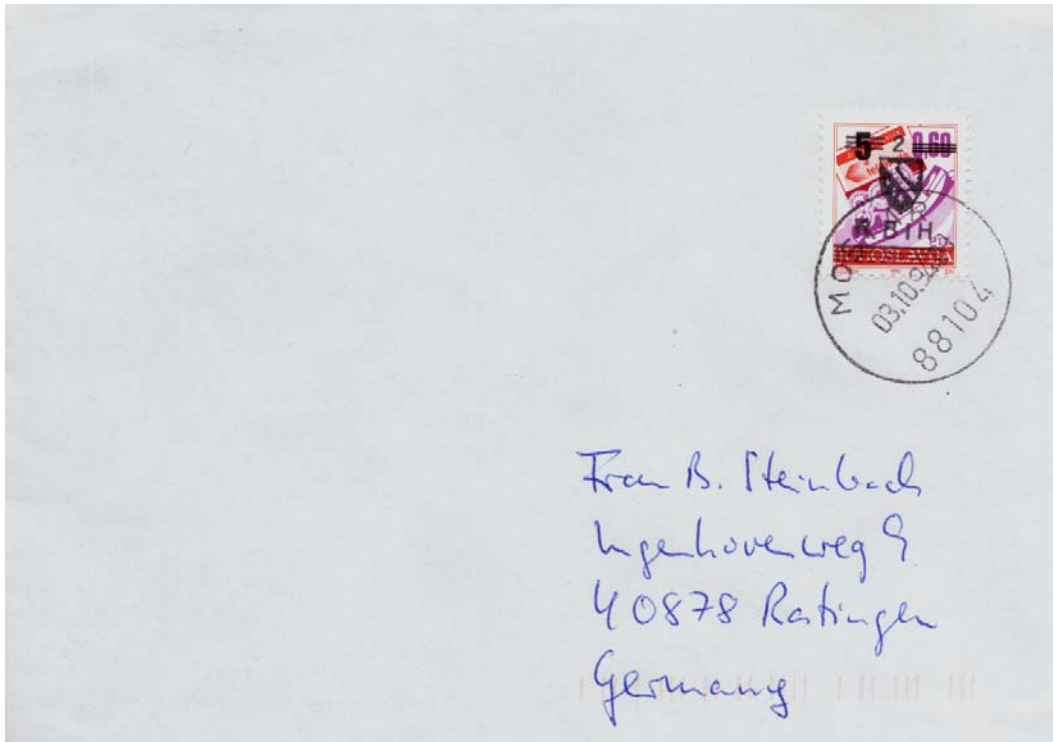 5 2 0,60
R BIH
JUGOSLAVIJA
03.10.94
88104
Frau B. Steinbach
Ingenhovenweg 9
40878 Ratingen
Germany